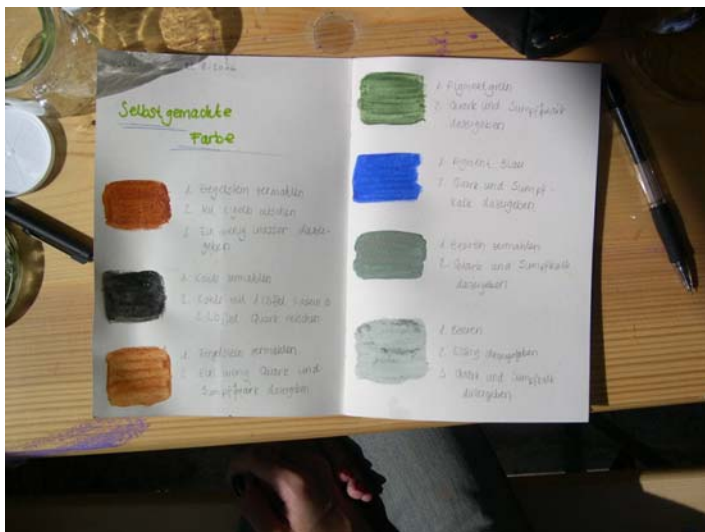 Selbstgemachte
Farbe
1. Ziegelstein zermahlen
2. mit Eigelb mischen
3. Ein wenig Wasser dazuge-
geben
1. Kohle zermahlen
2. Kohle mit 1 Löffel
2 Löffel Quark mischen
1. Ziegelstein zermahlen
2. Ein wenig Quark und
dazugeben
1. Pigmentgrün
2. Quark und
dazugeben
1. Pigment Blau
2. Quark und Sumpf-
kalk dazugeben
1. Beeren zermahlen
2. Quark und Sumpfkalk
dazugeben
1. Beeren
2. Essig dazugeben
3. Quark und Sumpfkalk
dazugeben